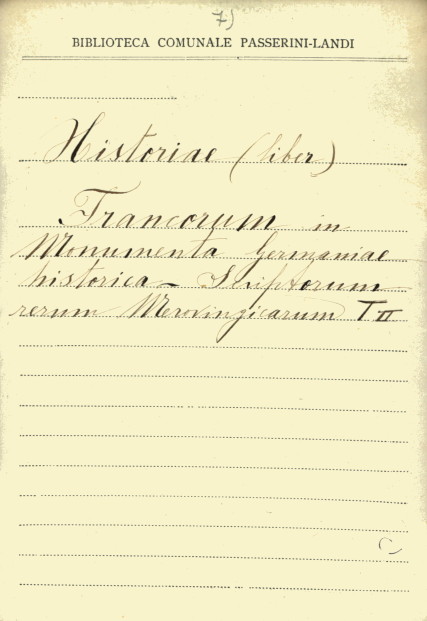 75
BIBLIOTECA COMUNALE PASSERINI-LANDI
Historiae (liber)
Francorum in
Monumenta Germaniae
historica - Scriptorum
rerum Merovingicarum T II
C